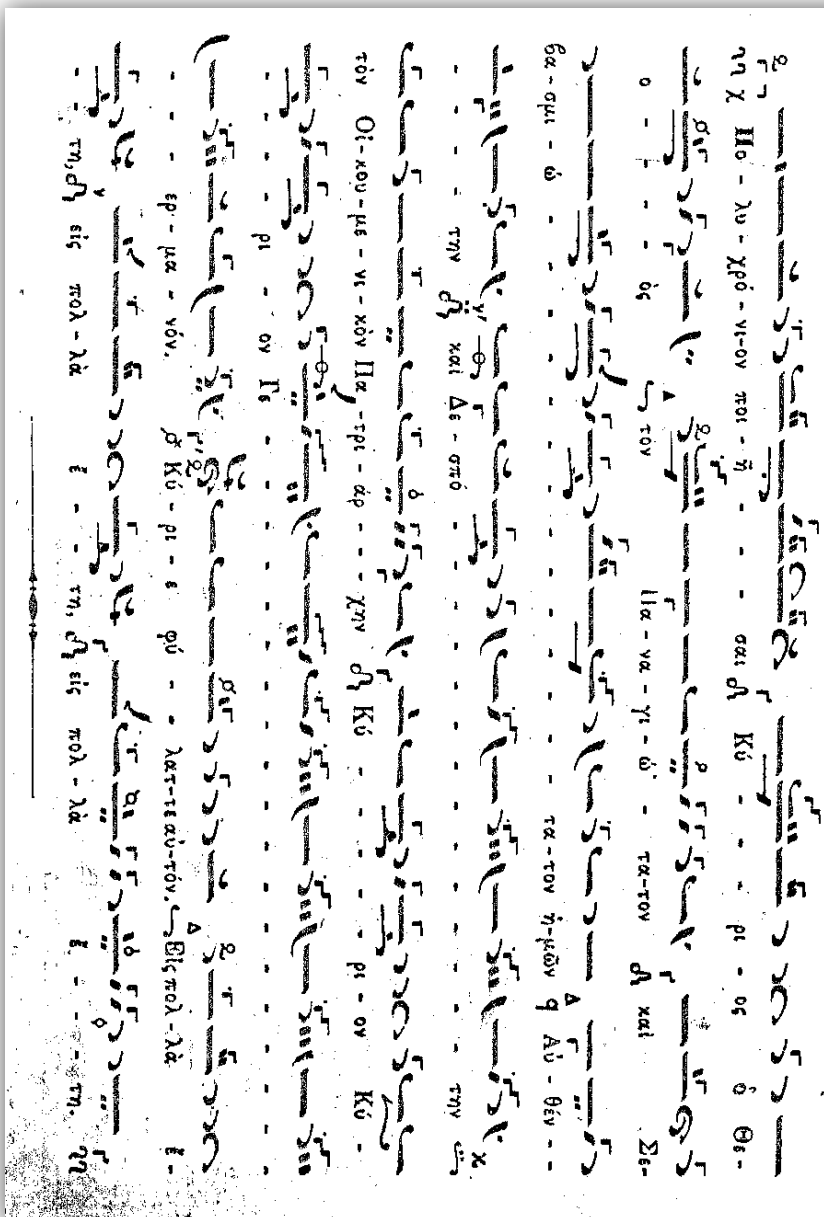 Πο - λυ - χρό - νι - ον ποι - ή - - - σαι Κύ - - - ρι - ος ὁ Θε -
ο - - - - ὸς τὸν Πα - να - γι - ώ - τα - τον καὶ Σε -
βα - σμι - ώ - - - - - - - - τα - τον ἡ - μῶν Αὐ - θέν - -
- - - - την καὶ Δε - σπό - - - - - - - - - - την
τὸν Οἰ - κου - με - νι - κὸν Πα - τρι - άρ - - - χην Κύ - - - - ρι - ον Κύ -
- - - - ρι - ον Γε - - - - - - - - - - - - - -
- - - ερ - μα - νόν. Κύ - ρι - ε φύ - - λατ - τε αὐ - τόν. Εἰς πολ - λὰ ἔ -
- - τη, εἰς πολ - λὰ ἔ - - - τη, εἰς πολ - λὰ ἔ - - - τη.